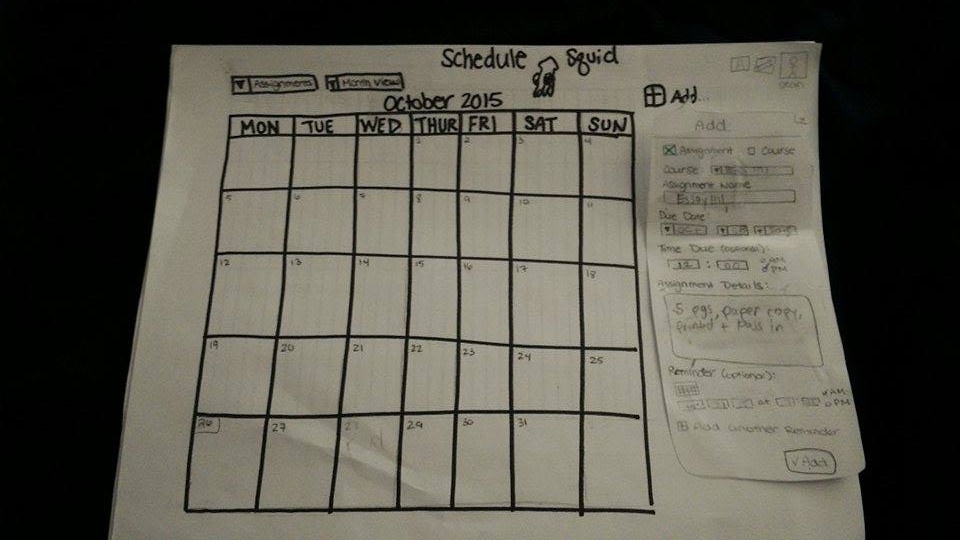 Schedule Squid
Assignments Month View
October 2015
Add...
MON TUE WED THUR FRI SAT SUN
1 2 3 4
5 6 7 8 9 10 11
12 13 14 15 16 17 18
19 20 21 22 23 24 25
26 27 28 29 30 31
Add
Assignment Course
Course:
Assignment Name
Essay
Due Date:
Oct
Time Due (optional):
12 : 00 AM
PM
Assignment Details:
5 pgs, paper copy,
printed + pass in
Reminder (optional):
at AM
PM
Add another Reminder
Add